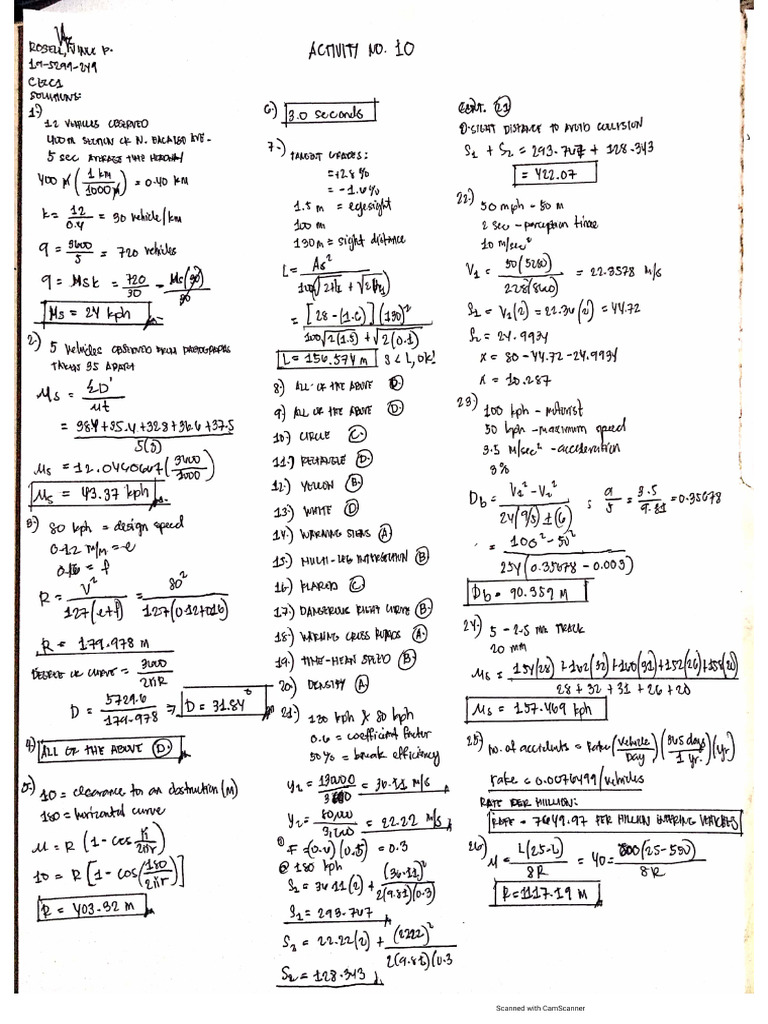 ROSELL, VINCE P.
17-5299-249
CE2C1
SOLUTIONS:
ACTIVITY NO. 10
1.)
12 VEHICLES OBSERVED
400m SECTION OF N. BACALSO AVE.
5 sec AVERAGE TIME HEADWAY
400 m (1 km / 1000 m) = 0.40 KM
k = 12 / 0.4 = 30 vehicle/km
q = 3600 / 5 = 720 vehicles
q = Msk = 720 / 30 = Ms(30) / 30
Ms = 24 kph
2.) 5 vehicles OBSERVED FROM PHOTOGRAPHS
TAKEN 3S APART
Ms = ΣD' / Mt
= 38.4 + 35.4 + 32.8 + 36.6 + 37.5 / 5(3)
Ms = 12.0460667 (3600 / 1000)
Ms = 43.37 kph
3.) 80 kph = design speed
0.12 m/m = e
0.16 = f
R = V² / 127(e+f) = 80² / 127(0.12+0.16)
R = 179.978 m
DEGREE OF CURVE = 3600 / 2πR
D = 5729.6 / 179.978 ⇒ D = 31.84°
4.) ALL OF THE ABOVE D.
5.) 10 = clearance to an obstruction (M)
180 = horizontal curve
M = R (1 - cos K / 2πr)
10 = R [1 - cos (180 / 2πr)]
R = 403.32 m
6.) 3.0 seconds
7.)
TANGENT GRADES:
= +2.8 %
= -1.6 %
1.5 m = eyesight
100 m
130 m = sight distance
L = As² / 100(√2H₁ + √2H₂)²
= [28 - (1.6)] (130)² / 100√2(1.5) + √2(0.1)
L = 156.574 m S < L, OK!
8) ALL OF THE ABOVE D.
9) ALL OF THE ABOVE D.
10) CIRCLE C.
11.) RECTANGLE D.
12.) YELLOW B.
13.) WHITE D
14.) WARNING SIGNS A
15.) MULTI-LEG INTERSECTION B
16.) FLARED C
17.) DANGEROUS RIGHT CURVE B.
18.) WARNING CROSS ROADS A.
19.) TIME-MEAN SPEED B
20.) DENSITY A
21.) 130 kph & 80 kph
0.6 = coefficient factor
50% = break efficiency
= 36.11 m/s
= 22.22 m/s
F = (0.6)(0.5) = 0.3
@ 130 kph
S₁ = 36.11(2) + (36.11)² / 2(9.81)(0.3)
S₁ = 293.747
S₂ = 22.22(2) + (2222)² / 2(9.81)(0.3
S₂ = 128.343
CONT. 21
D. SIGHT DISTANCE TO AVOID COLLISION
S₁ + S₂ = 293.747 + 128.343
= 422.07
22.)
50 mph - 80 m
2 sec - perception time
10 m/sec²
V₁ = 50(5280) / 3.28(3600) = 22.3578 m/s
S₁ = V₁(2) = 22.36(2) = 44.72
S₂ = 24.9934
x = 80 - 44.72 - 24.9934
x = 10.287
23.)
100 kph - motorist
50 kph - maximum speed
3.5 m/sec² - acceleration
3%
Db = V₁² - V₂² / 254(a/g) ± (G) ; a / g = 3.5 / 9.81 = 0.35678
= 100² - 50² / 254(0.35678 - 0.003)
Db = 90.352 M
24.) 5 - 2.5 mi TRACK
20 min
Ms = 154(28) + 162(32) + 160(31) + 152(26) + 158(20) / 28 + 32 + 31 + 26 + 20
Ms = 157.469 kph
25.) no. of accidents = Rate (vehicle / Day) (365 days / 1 yr.) (yr)
rate = 0.0076499 / vehicles
RATE PER MILLION:
RATE = 7649.97 PER MILLION ENTERING VEHICLES
26.) M = L(2S-L) / 8R = 40 = 500(25-550) / 8R
R = 1117.19 M
Scanned with CamScanner